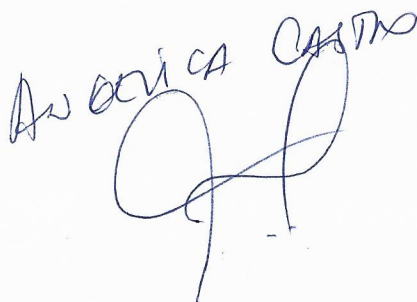 ANGELICA CASTRO